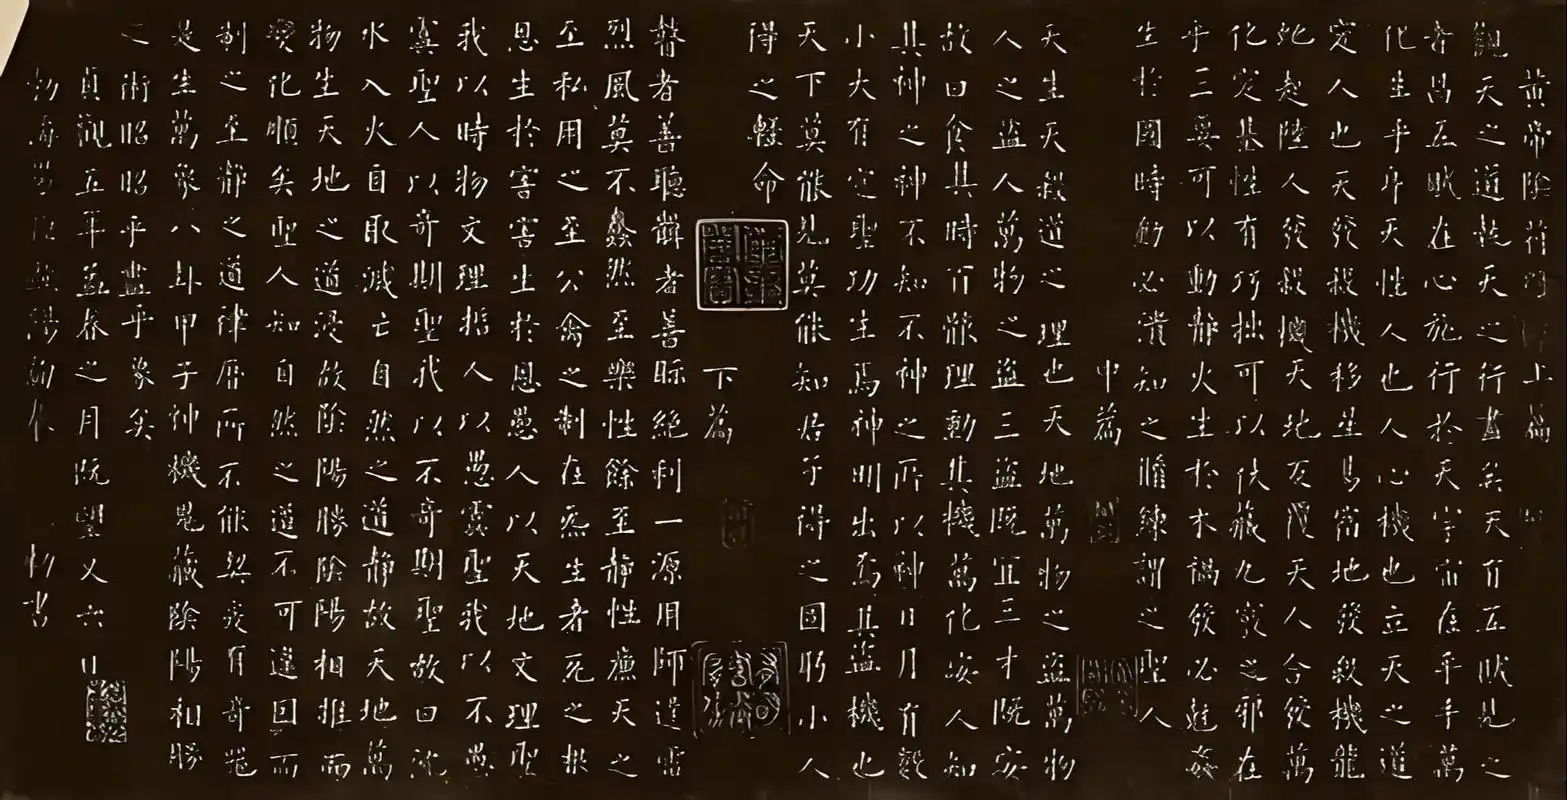 黃帝陰符經 上篇
觀天之道執天之行盡矣天有五賊見之
者昌五賊在心施行於天宇宙在乎手萬
化生乎身天性人也人心機也立天之道
定人也天發殺機移星易宿地發殺機龍
虵起陸人發殺機天地反覆天人合發萬
化定基性有巧拙可以伏藏九竅之邪在
乎三要可以動靜火生於木禍發必尅姦
生於國時動必潰知之脩練謂之聖人
中篇
天生天殺道之理也天地萬物之盜萬物
人之盜人萬物之盜三盜既宜三才既安
故曰食其時百骸理動其機萬化安人知
其神之神不知不神之所以神日月有數
小大有定聖功生焉神明出焉其盜機也
天下莫能見莫能知君子得之固躬小人
得之輕命
下篇
瞽者善聽聾者善眎絕利一源用師道雷
烈風莫不蠢然至樂性餘至靜性廉天之
至私用之至公禽之制在炁生者死之根
恩生於害害生於恩愚人以天地文理聖
我以時物文理哲人以愚虞聖我以不愚
虞聖人以奇期聖我以不奇期聖故曰沉
水入火自取滅亡自然之道靜故天地萬
物生天地之道浸故陰陽勝陰陽相推而
變化順矣聖人知自然之道不可違因而
制之至靜之道律曆所不能契爰有奇器
是生萬象八卦甲子神機鬼藏陰陽相勝
之術昭昭乎盡乎象矣
貞觀五年孟春之月既望又六日
歐陽詢奉 勑書